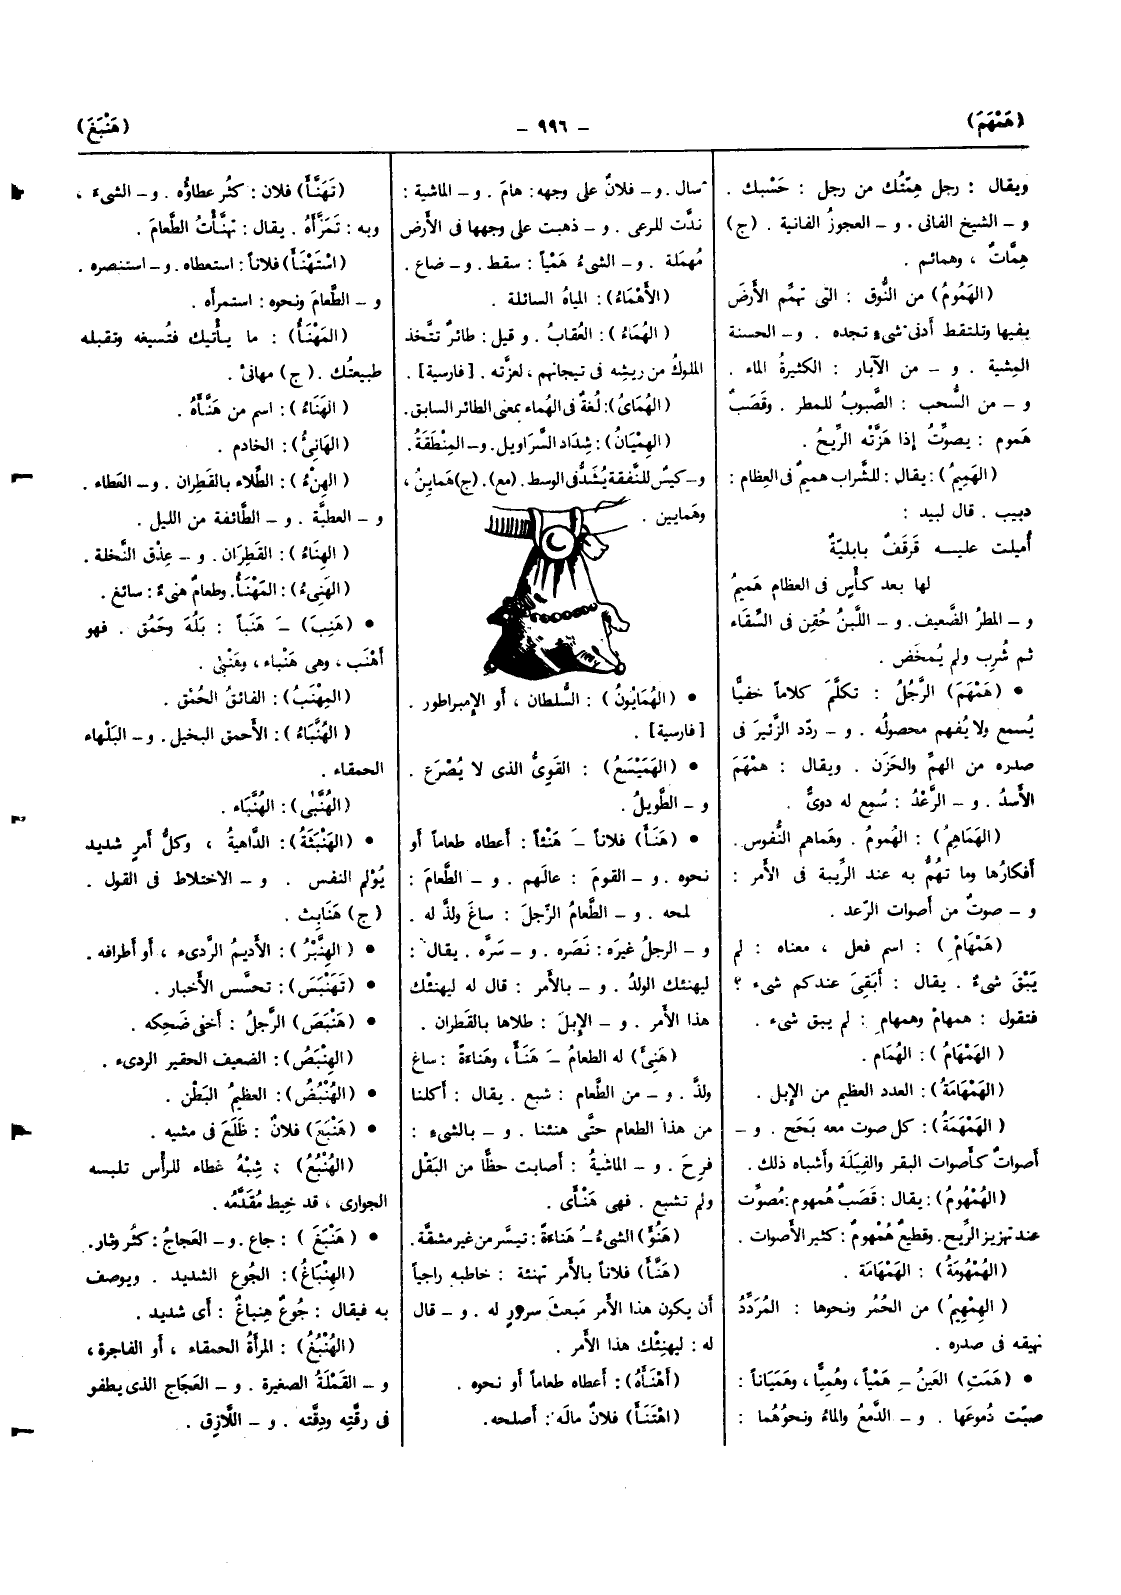 (هَمْهَمَ)
– ٩٩٦ –
(هَنْبَغَ)
ويقال : رجل هِمَّتُك من رجل : حَسْبك .
و – الشيخ الفانى . و – العجوزُ الفانية . (ج)
هِمَّاتٌ ، وهمائم .
(الهَمُومُ) من النُّوق : التى تهمِّم الأَرضَ
بفيها وتلتقط أَدنى شىءٍ تجده . و – الحسنة
المِشية . و – من الآبار : الكثيرةُ الماء .
و – من السُّحب : الصَّبوبُ للمطر . وقَصَبٌ
هَموم : يصوِّتُ إِذا هَزَّتْه الرِّيحُ .
(الهَمِيمُ) : يقال : للشَّراب هميمٌ فى العِظام :
دبيب . قال لبيد :
أُميلت عليـــه قَرقَفٌ بابليّةٌ
لها بعد كأْسٍ فى العظام هَميمُ
و – المطرُ الضَّعيف . و – اللبنُ حُقِن فى السِّقَاء
ثم شُرِب ولم يُمخَض .
• (هَمْهَمَ) الرَّجُلُ : تكلَّمَ كلاماً خفيًّا
يُسمع ولا يُفهم محصولُه . و – ردّد الزَّئيرَ فى
صدره من الهمِّ والحَزَن . ويقال : همْهَمَ
الأَسدُ . و – الرَّعْدُ : سُمِع له دوىٌّ .
(الهَمَاهِمُ) : الهُمومُ . وهَماهم النُّفوس .
أَفكارُها وما تهُمُّ به عند الرِّيبة فى الأَمر :
و – صوتٌ من أَصوات الرّعد .
(هَمْهَامْ) : اسم فعل ، معناه : لم
يَبْقَ شىءٌ . يقال : أَبَقِىَ عندكم شىء ؟
فتقول : همهامْ وهمهامِ : لم يبق شىء .
(الهَمْهَامُ) : الهُمَام .
(الهَمْهَامَةُ) : العدد العظيم من الإِبل .
(الهَمْهَمَةُ) : كل صوت معه بَحَح . و –
أَصواتٌ كأَصوات البقر والفِيَلَة وأَشباه ذلك .
(الهُمْهُومُ) : يقال : قَصَبٌ هُمهوم : مُصوِّت
عند تهزيز الرِّيح . وقطيعٌ هُمْهومٌ : كثير الأَصوات .
(الهُمْهُومَةُ) : الهَمْهَامَة .
(الهِمْهِيمُ) من الحُمُر ونحوها : المُرَدِّدُ
نهيقه فى صدره .
• (هَمَتِ) العَينُ – هَمْياً ، وهُمِيًّا ، وهَمَيَاناً :
صبّت دُموعَها . و – الدَّمعُ والماءُ ونحوُهُما :
سال . و – فلانٌ على وجهه : هامَ . و – الماشية :
ندَّت للرعى . و – ذهبت على وجهها فى الأَرض
مُهمَلة . و – الشىءُ هَمْياً : سقط . و – ضاع .
(الأَهْمَاءُ) : المياهُ السائلة .
(الهُمَاءُ) : العُقابُ . و قيل : طائرٌ تتَّخذ
الملوكُ من ريشِه فى تيجانهم ، لعزَّته . [ فارسية ] .
(الهُمَاىُ) : لُغةٌ فى الهُماء بمعنى الطائر السابق .
(الهِمْيَانُ) : شِدَاد السَّرَاويل . و – المِنْطَقَةُ .
و – كيسٌ للنَّفقة يُشَدُّ فى الوسط . (مع) . (ج) هَمايِنُ ،
وهَمايين .
• (الهُمَايُونُ) : السُّلطان ، أَو الإِمبراطور .
[ فارسية ] .
• (الهَمَيْسَعُ) : القَوِىُّ الذى لا يُصْرَع .
و – الطَّويلُ .
• (هَنَأَ) فلاناً – هَنْئاً : أَعطاه طعاماً أَو
نحوه . و – القومَ : عالَهم . و – الطَّعامَ :
لمحه . و – الطَّعامُ الرَّجلَ : ساغَ ولذَّ له .
و – الرجلُ غيرَه : نَصَره . و – سَرَّه . يقال :
ليهنئك الولدُ . و – بالأَمر : قال له ليهنئك
هذا الأَمر . و – الإِبلَ : طلاها بالقَطران .
(هَنِئَ) له الطعامُ – هَنَأً ، وهَناءَةً : ساغ
ولذَّ . و – من الطَّعام : شبع . يقال : أَكلنا
من هذا الطعام حتَّى هنئنا . و – بالشىء :
فرِحَ . و – الماشيةُ : أَصابت حظًّا من البَقْل
ولم تشبع . فهى هَنْأَى .
(هَنُؤَ) الشىءُ – هَناءَةً : تيسَّر من غير مشقَّة .
(هَنَّأَ) فلاناً بالأَمر تهنئة : خاطبه راجياً
أَن يكون هذا الأَمر مَبعثَ سرورٍ له . و – قال
له : ليهنِئْك هذا الأَمر .
(أَهْنَأَهُ) : أَعطاه طعاماً أَو نحوه .
(اهْتَنَأَ) فلانٌ مالَه : أَصلحه .
(تَهَنَّأَ) فلان : كثُر عطاؤُه . و – الشىءَ ،
وبه : تَمَرَّأَهُ . يقال : تهنَّأْتُ الطَّعامَ .
(اسْتَهْنَأَ) فلاناً : استعطاه . و – استنصره .
و – الطَّعامَ ونحوَه : استمرأَه .
(المَهْنَأُ) : ما يأْتيك فتُسيغه وتقبله
طبيعتُك . (ج) مهانىْ .
(الهَنَاءُ) : اسم من هَنَّأَهُ .
(الهَانِئُ) : الخادم .
(الهِنْءُ) : الطِّلاء بالقَطِران . و – العَطاء .
و – العطيَّة . و – الطَّائفة من الليل .
(الهِنَاءُ) : القَطِرَان . و – عِذْق النَّخلة .
(الهَنِىءُ) : المَهْنَأُ . وطعامٌ هنىءٌ : سائغ .
• (هَنِبَ) – هَنَباً : بَلُهَ وحَمُق . فهو
أَهْنَب ، وهى هَنْباء ، وهَنْبَى .
(المِهْنَبُ) : الفائقُ الحُمْق .
(الهُنَّبَاءُ) : الأَحمق البخيل . و – البَلْهاء
الحمقاء .
(الهُنَّبَى) : الهُنَّبَاء .
• (الهَنْبَثَةُ) : الدَّاهيةُ ، وكلُّ أَمرٍ شديد
يُؤلم النفس . و – الاختلاط فى القول .
(ج) هَنَابِث .
• (الهِنَّبْرُ) : الأَديمُ الرَّدىء ، أَو أَطرافه .
• (تَهَنْبَسَ) : تحسَّس الأَخبار .
• (هَنْبَصَ) الرَّجلُ : أَخفى ضَحِكه .
(الهِنْبَصُ) : الضعيف الحقير الردىء .
• (الهُنْبُضُ) : العظيمُ البَطْن .
• (هَنْبَعَ) فلانٌ : ظَلَعَ فى مشيه .
(الهُنْبُعُ) : شِبْهُ غطاء للرأْس تلبسه
الجوارى ، قد خِيط مُقَدَّمُه .
• (هَنْبَغَ) : جاع . و – العَجاجُ : كثُر وثار .
(الهِنْبَاغُ) : الجُوع الشديد . ويوصف
به فيقال : جُوعٌ هِنباغٌ : أَى شديد .
(الهُنْبُغُ) : المرأَةُ الحمقاء ، أَو الفاجرة ،
و – القَمْلَةُ الصغيرة . و – العَجَاج الذى يطفو
فى رقَّتِه ودِقَّته . و – اللَّازِق .